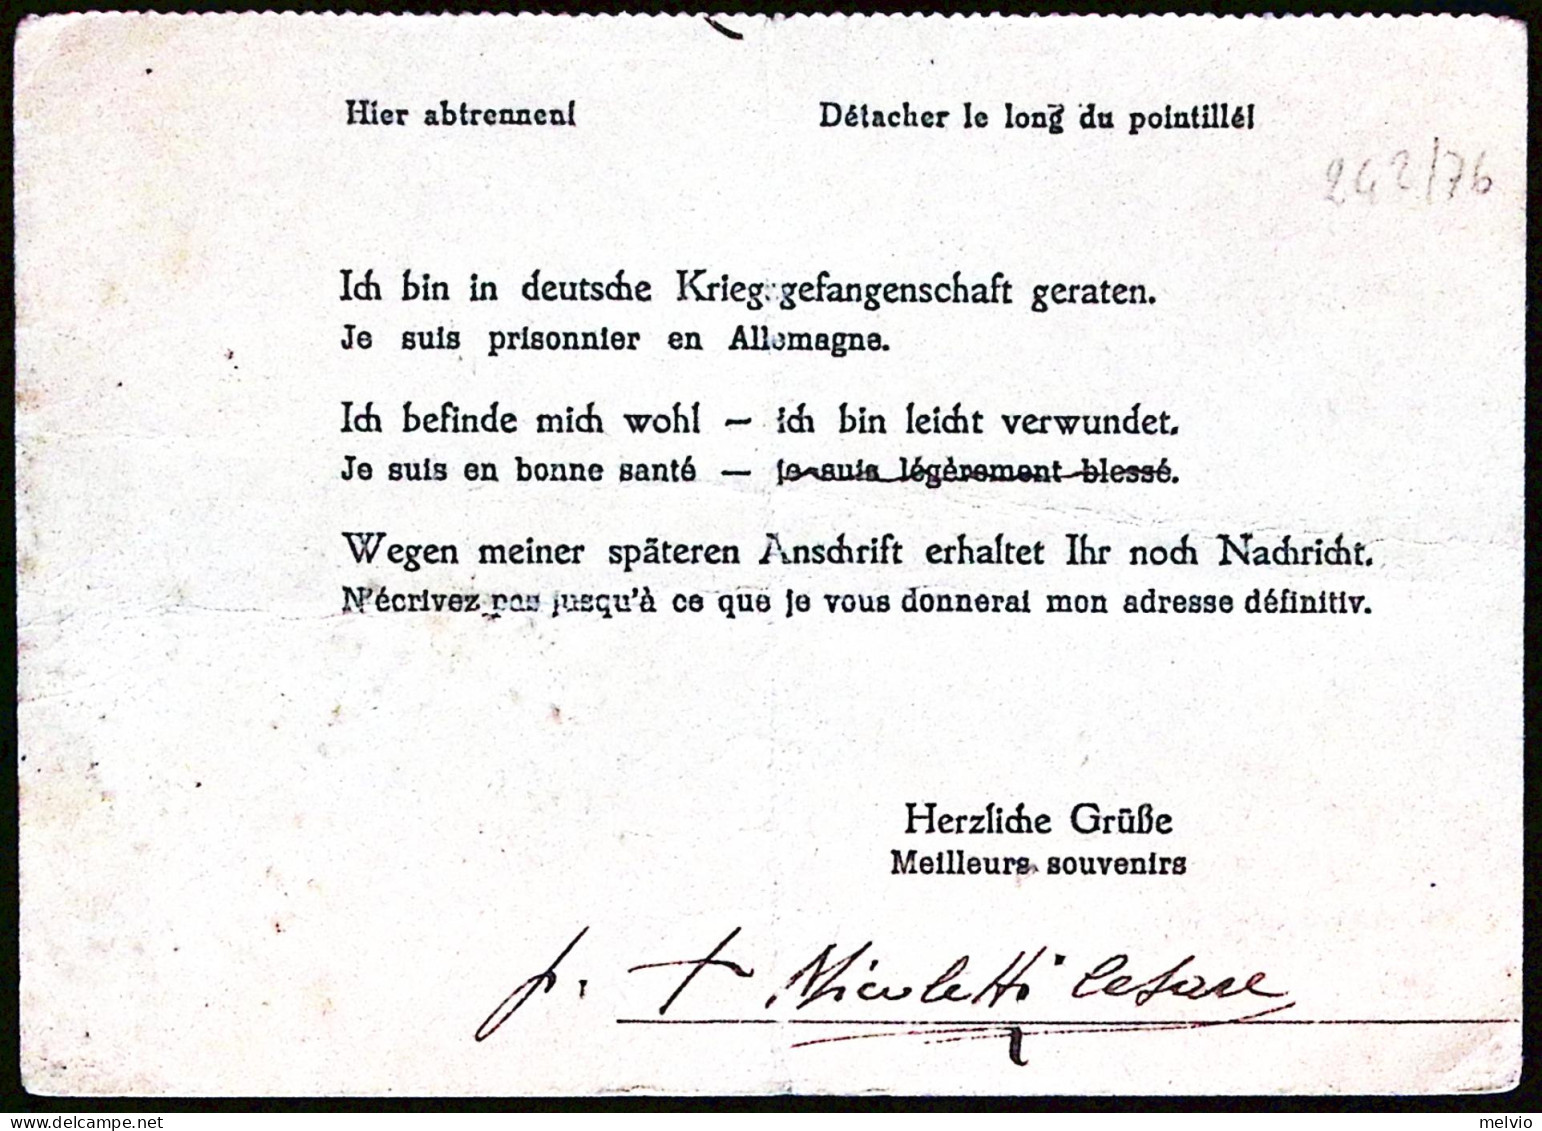 Hier abtrennen!
Détacher le long du pointillé!
242/76
Ich bin in deutsche Kriegsgefangenschaft geraten.
Je suis prisonnier en Allemagne.
Ich befinde mich wohl – ich bin leicht verwundet.
Je suis en bonne santé – je suis légèrement blessé.
Wegen meiner späteren Anschrift erhaltet Ihr noch Nachricht.
N'écrivez pas jusqu'à ce que je vous donnerai mon adresse définitiv.
Herzliche Grüße
Meilleurs souvenirs
Nicoletti Cesare
delcampe.net
melvio